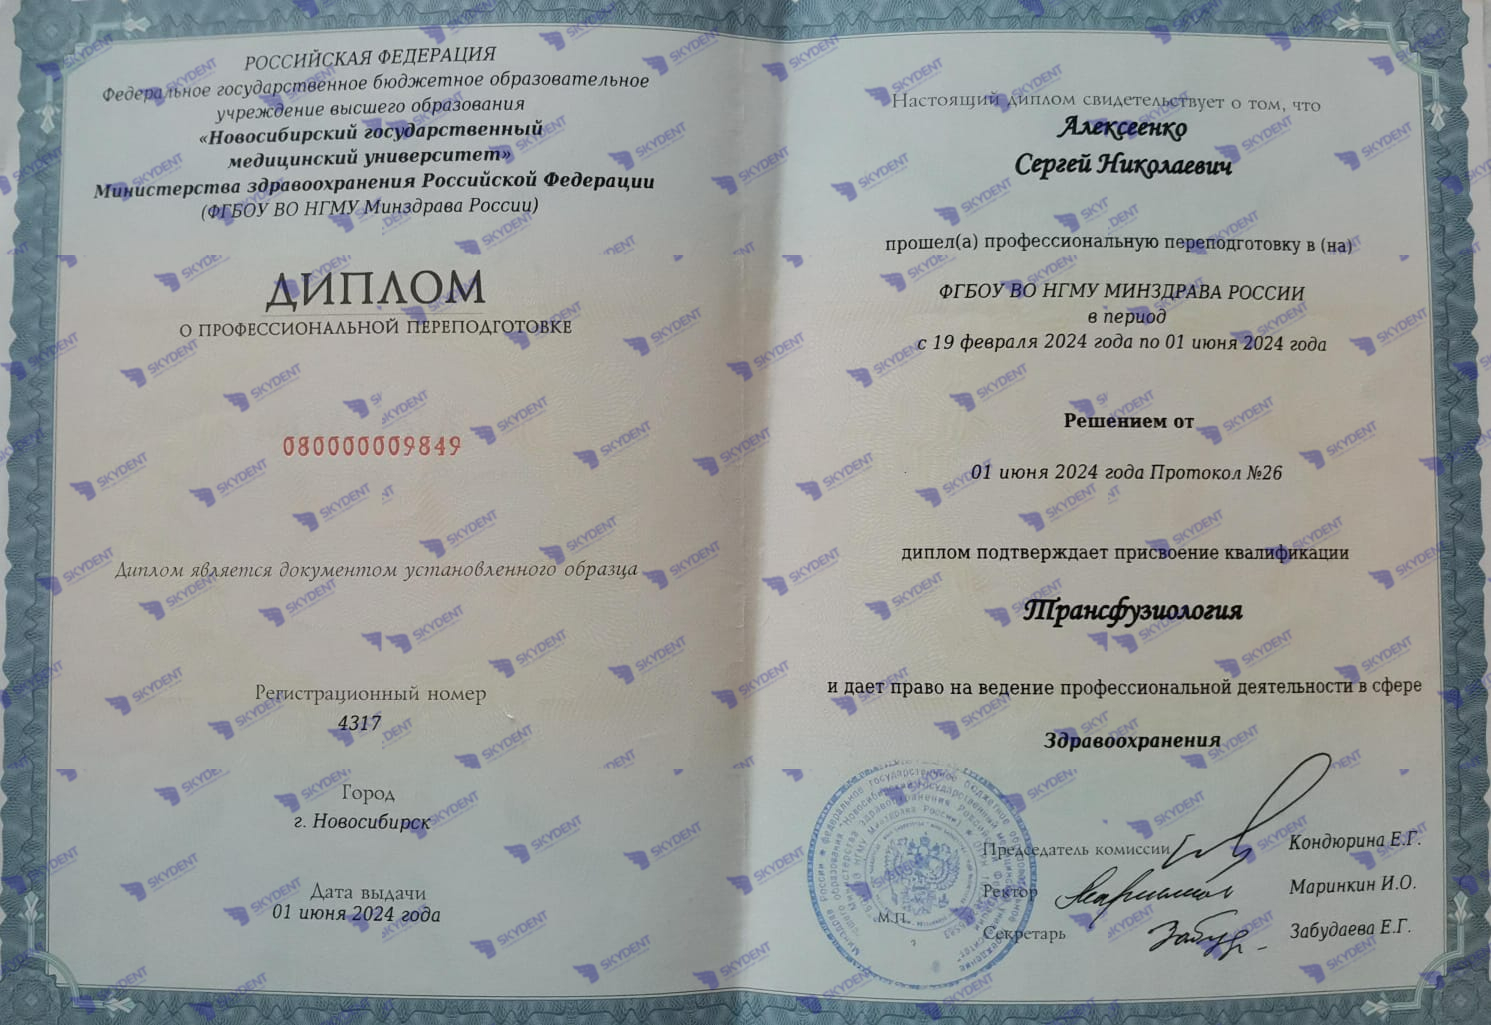 РОССИЙСКАЯ ФЕДЕРАЦИЯ
Федеральное государственное бюджетное образовательное
учреждение высшего образования
«Новосибирский государственный
медицинский университет»
Министерства здравоохранения Российской Федерации
(ФГБОУ ВО НГМУ Минздрава России)
ДИПЛОМ
О ПРОФЕССИОНАЛЬНОЙ ПЕРЕПОДГОТОВКЕ
080000009849
Диплом является документом установленного образца
Регистрационный номер
4317
Город
г. Новосибирск
Дата выдачи
01 июня 2024 года
Настоящий диплом свидетельствует о том, что
Алексеенко
Сергей Николаевич
прошел(а) профессиональную переподготовку в (на)
ФГБОУ ВО НГМУ МИНЗДРАВА РОССИИ
в период
с 19 февраля 2024 года по 01 июня 2024 года
Решением от
01 июня 2024 года Протокол №26
диплом подтверждает присвоение квалификации
Трансфузиология
и дает право на ведение профессиональной деятельности в сфере
Здравоохранения
Председатель комиссии Кондюрина Е.Г.
Ректор Маринкин И.О.
М.П.
Секретарь Забудаева Е.Г.
SKYDENT